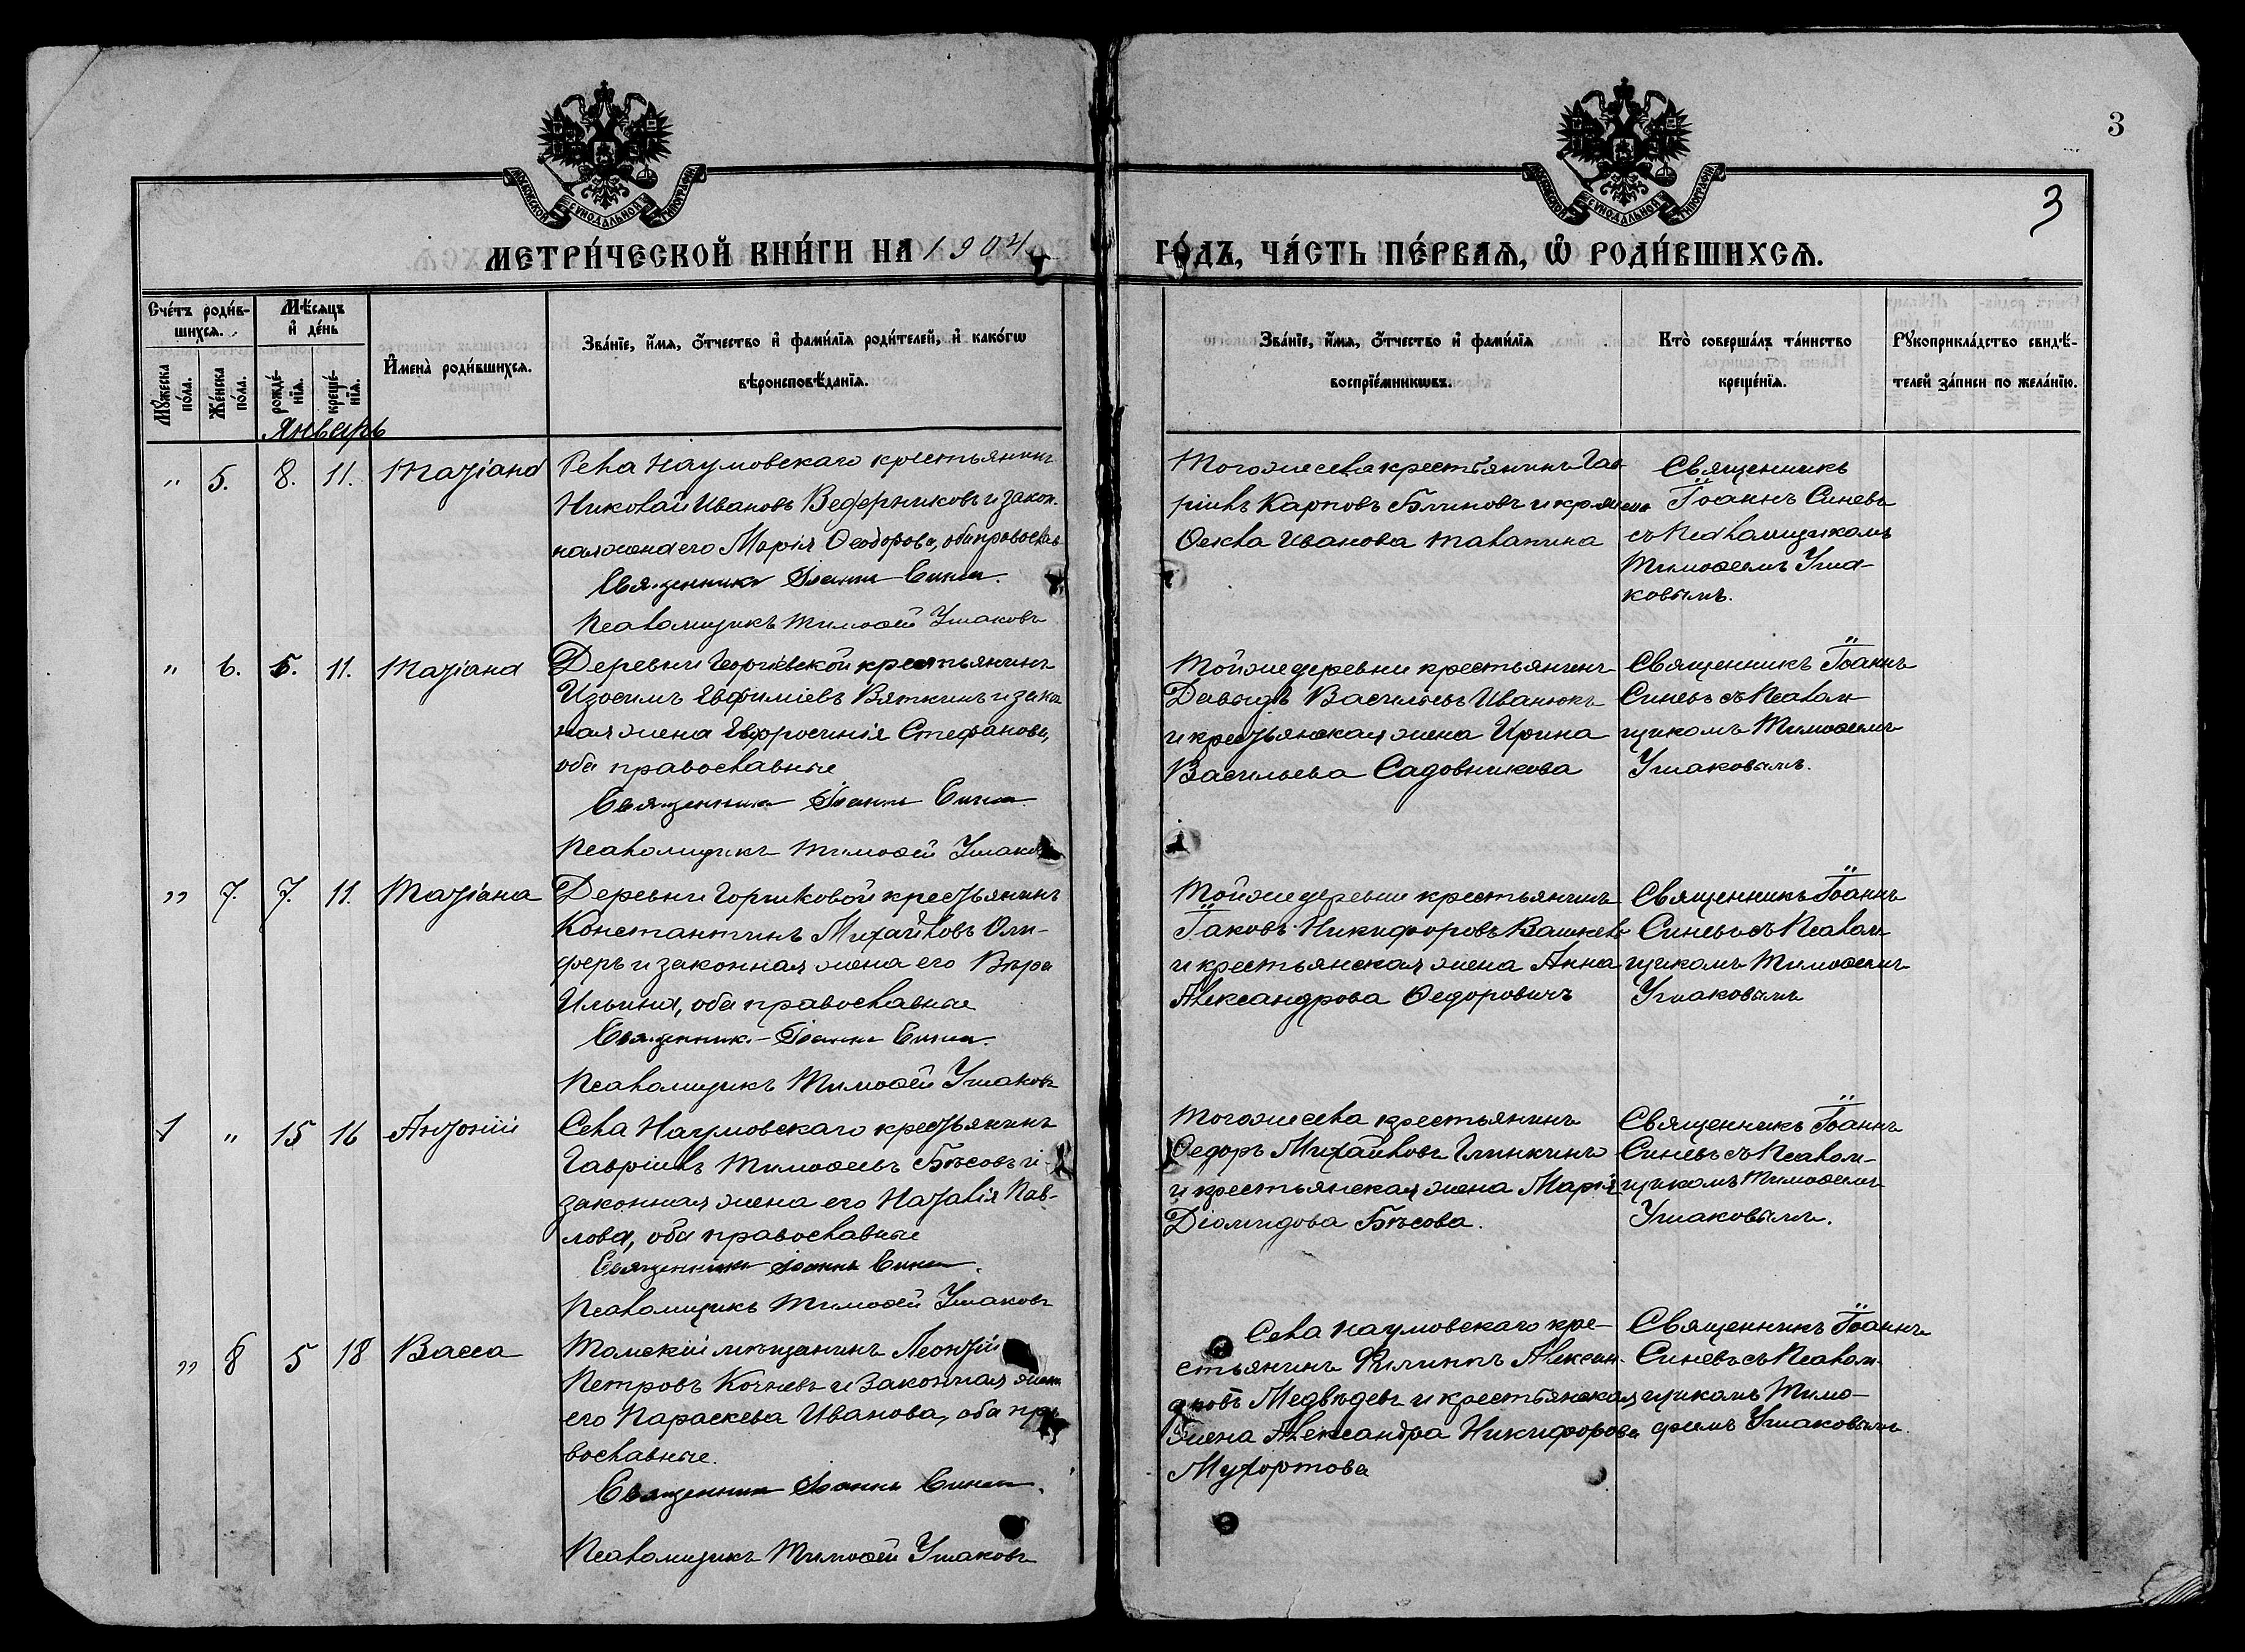 3
3
МОСКОВСКОЙ СѴНОДАЛЬНОЙ ТИПОГРАФІИ
МОСКОВСКОЙ СѴНОДАЛЬНОЙ ТИПОГРАФІИ
МЕТРИ́ЧЕСКОЙ КНИ́ГИ НА 1904
ГО́ДЪ, ЧА́СТЬ ПЕ́РВАѦ, Ѡ҆ РОДИ́ВШИХСѦ.
Сче́тъ роди́в-
шихсѧ.
Мѣ́сяцъ
и҆ де́нь
Мꙋ́жеска
по́ла.
Же́нска
по́ла.
рожде́-
нїѧ.
креще́-
нїѧ.
И҆мена̀ роди́вшихсѧ.
Зва́нїе, и҆́мѧ, ѻ҆́тчество и҆ фами́лїѧ роди́телей, и҆ како́гѡ
вѣроисповѣ́данїѧ.
Зва́нїе, и҆́мѧ, ѻ҆́тчество и҆ фами́лїѧ
воспрїе́мникѡвъ.
Кто̀ соверша́лъ та́инство
креще́нїѧ.
Рꙋкоприкла́дство свидѣ́-
телей за́писи по жела́нїю.
Январь
" 5. 8. 11. Татіана
Села Наумовскаго крестьянинъ
Николай Ивановъ Ведерниковъ и закон.
ная жена его Марія Ѳеодорова, оба православ
Священникъ Іоаннъ Синевъ.
Псаломщикъ Тимоѳей Ушаковъ
Тогоже села крестьянинъ Гав-
ріилъ Карповъ Блиновъ и
Ѳекла Иванова
Священникъ
Іоаннъ Синевъ
съ Псаломщикомъ
Тимоѳеемъ Уша-
ковымъ.
" 6. 5. 11. Татіана
Деревни Георгіевской крестьянинъ
Изосимъ Евфиміевъ Вяткинъ и закон
ная жена Евфросинія Стефанова,
оба православные
Священникъ Іоаннъ Синевъ
Псаломщикъ Тимоѳей Ушаковъ
Тойже деревни крестьянинъ
Давыдъ Васильевъ Иванюкъ
и крестьянская жена Ирина
Васильева Садовникова
Священникъ Іоаннъ
Синевъ съ Псалом-
щикомъ Тимоѳеемъ
Ушаковымъ.
" 7. 7. 11. Татіана
Деревни Горшковой крестьянинъ
Константинъ Михайловъ Оли-
феръ и законная жена его Вѣра
Ильина, оба православные
Священникъ Іоаннъ Синевъ.
Псаломщикъ Тимоѳей Ушаковъ
Тойже деревни крестьянинъ
Іаковъ Никифоровъ
и крестьянская жена Анна
Александрова Ѳедоровичъ
Священникъ Іоаннъ
Синевъ съ Псалом
щикомъ Тимоѳеемъ
Ушаковымъ
1 " 15 16 Антоній
Села Наумовскаго крестьянинъ
Гавріилъ Тимоѳеевъ Бѣсовъ и
законная жена его Наталія Пав-
лова, оба православные
Священникъ Іоаннъ Синевъ.
Псаломщикъ Тимоѳей Ушаковъ
Тогоже села крестьянинъ
Ѳедоръ Михайловъ Глинкинъ
и крестьянская жена Марія
Діомидова Бѣсова.
Священникъ Іоаннъ
Синевъ съ Псалом-
щикомъ Тимоѳеемъ
Ушаковымъ.
" 8 5 18 Васса
Томскій мѣщанинъ Леонтій
Петровъ Кочневъ и законная жена
его Параскева Иванова, оба пра
вославные.
Священникъ Іоаннъ Синевъ.
Псаломщикъ Тимоѳей Ушаковъ
Села Наумовскаго кре-
стьянинъ Филиппъ Алексан-
дровъ Медвѣдевъ и крестьянская
жена Александра Никифорова
Мухортова
Священникъ Іоаннъ
Синевъ съ Псалом-
щикомъ Тимо-
феемъ Ушаковымъ.